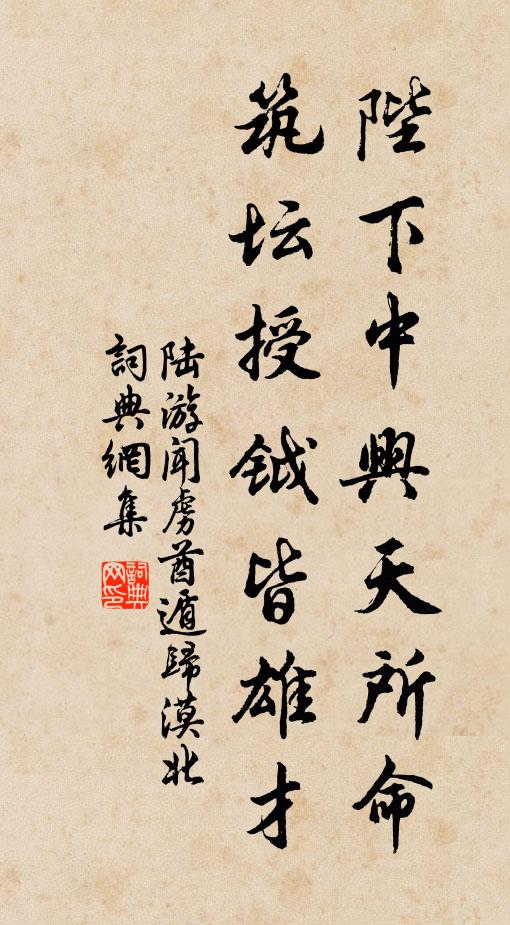 陛下中興天所命
筑坛授钺皆雄才
陆游闻虏酋遁歸漠北
詞典網集
詞典网印